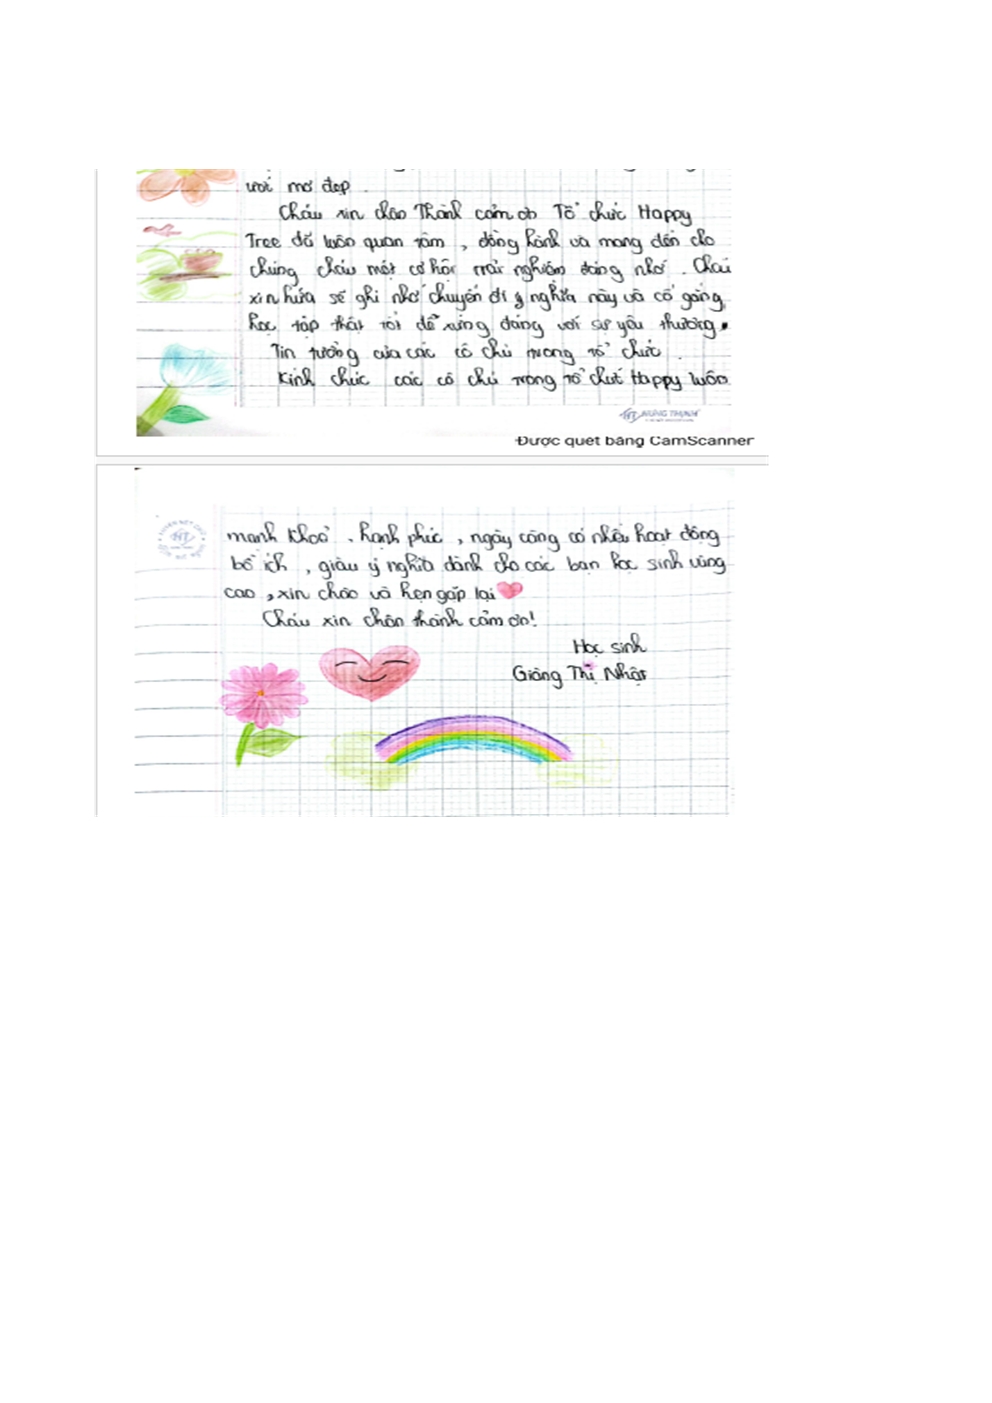 ước mơ đẹp.
Cháu xin chân Thành cảm ơn Tổ chức Happy
Tree đã luôn quan tâm, đồng hành và mang đến cho
chúng cháu một cơ hội trải nghiệm đáng nhớ. Cháu
xin hứa sẽ ghi nhớ chuyến đi ý nghĩa này và cố gắng
học tập thật tốt để xứng đáng với sự yêu thương,
Tin tưởng của các cô chú trong tổ chức.
Kính chúc các cô chú trong tổ chức Happy luôn
HT HƯNG THỊNH
Được quét bằng CamScanner
mạnh khoẻ, hạnh phúc, ngày càng có nhiều hoạt động
bổ ích, giàu ý nghĩa dành cho các bạn học sinh vùng
cao, xin chào và hẹn gặp lại
Cháu xin chân thành cảm ơn!
Học sinh
Giàng Thị Nhật
HT